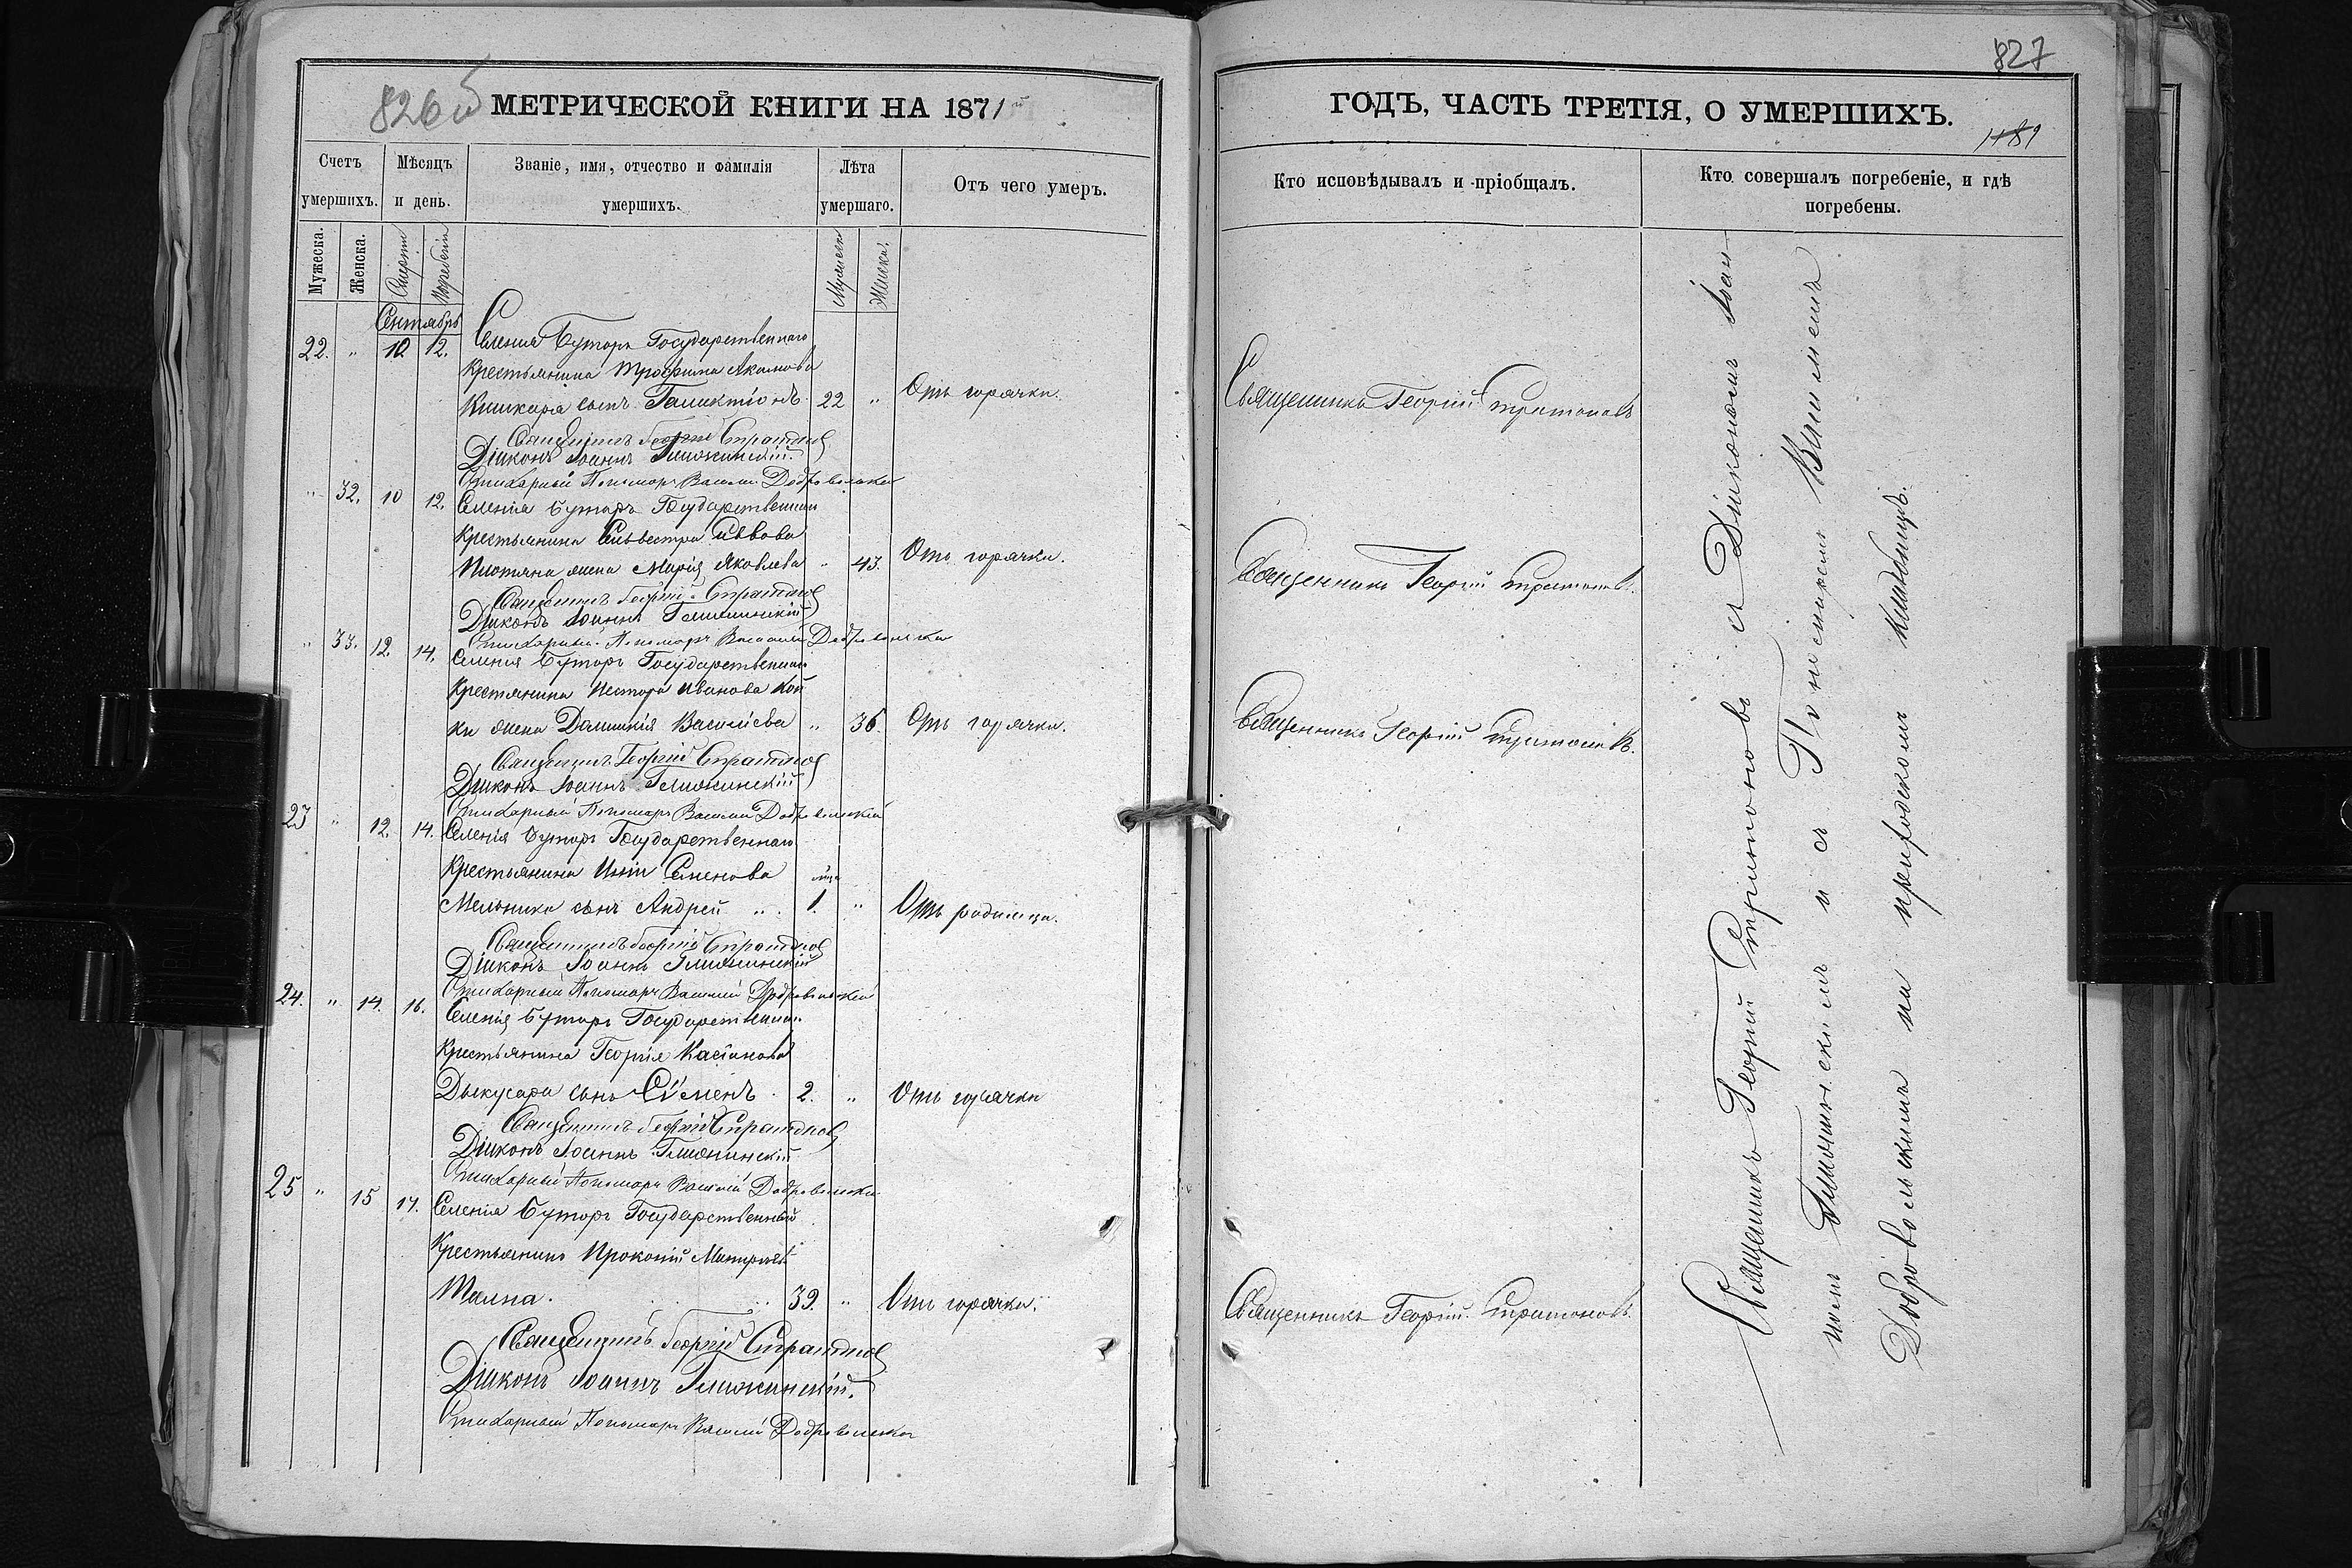 826 об
МЕТРИЧЕСКОЙ КНИГИ НА 1871й
Счетъ умершихъ.
Мѣсяцъ и день.
Званіе, имя, отчество и фамилія умершихъ.
Лѣта умершаго.
Отъ чего умеръ.
Мужеска.
Женска.
Смерти
Погребенія
Мужеска
Женска.
Сентябрь
22. " 10 12. Селенія Буторъ Государственнаго
Крестьянина Трофима
сынъ Галактіонъ 22 " Отъ горячки.
Священникъ Георгій Стратоновъ
Діаконъ Іоаннъ Глижинскій
Стихарный Пономарь Василій Добровольскій
" 32. 10 12. Селенія Буторъ Государственнаго
Крестьянина Сильвестра Саввова
жена Марія Яковлева " 43. Отъ горячки.
Священникъ Георгій Стратоновъ
Діаконъ Іоаннъ Глижинскій
Стихарный Пономарь Василій Добровольскій
" 33. 12. 14. Селенія Буторъ Государственнаго
Крестянина Нестора Иванова Кой
ки жена Домникія Василіева " 36. Отъ горячки.
Священникъ Георгій Стратоновъ
Діаконъ Іоаннъ Глижинскій
Стихарный Пономарь Василій Добровольскій
23 " 12. 14. Селенія Буторъ Государственнаго
Крестьянина Семенова
Мельника сынъ Андрей 1. " Отъ родимца.
Священникъ Георгій Стратоновъ
Діаконъ Іоаннъ Глижинскій
Стихарный Пономарь Василій Добровольскій
24. " 14. 16. Селенія Буторъ Государственнаго
Крестьянина Георгія Касіанова
Дыкусара сынъ Симеонъ 2. " Отъ горячки
Священникъ Георгій Стратоновъ
Діаконъ Іоаннъ Глижинскій
Стихарный Пономарь Василій Добровольскій
25 " 15 17. Селенія Буторъ Государственный
Крестьянинъ Прокопій
39. " Отъ горячки.
Священникъ Георгій Стратоновъ
Діаконъ Іоаннъ Глижинскій.
Стихарный Пономарь Василій Добровольскій
827
ГОДЪ, ЧАСТЬ ТРЕТІЯ, О УМЕРШИХЪ.
1181
Кто исповѣдывалъ и пріобщалъ.
Кто совершалъ погребеніе, и гдѣ
погребены.
Священникъ Георгій Стратоновъ
Священникъ Георгій Стратоновъ.
Священникъ Георгій Стратоновъ.
Священникъ Георгій Стратоновъ.
Священникъ Георгій Стратоновъ съ Діакономъ Іоан-
номъ Глижинскимъ и съ Пономаремъ Василіемъ
Добровольскимъ на приходскомъ кладбищѣ.